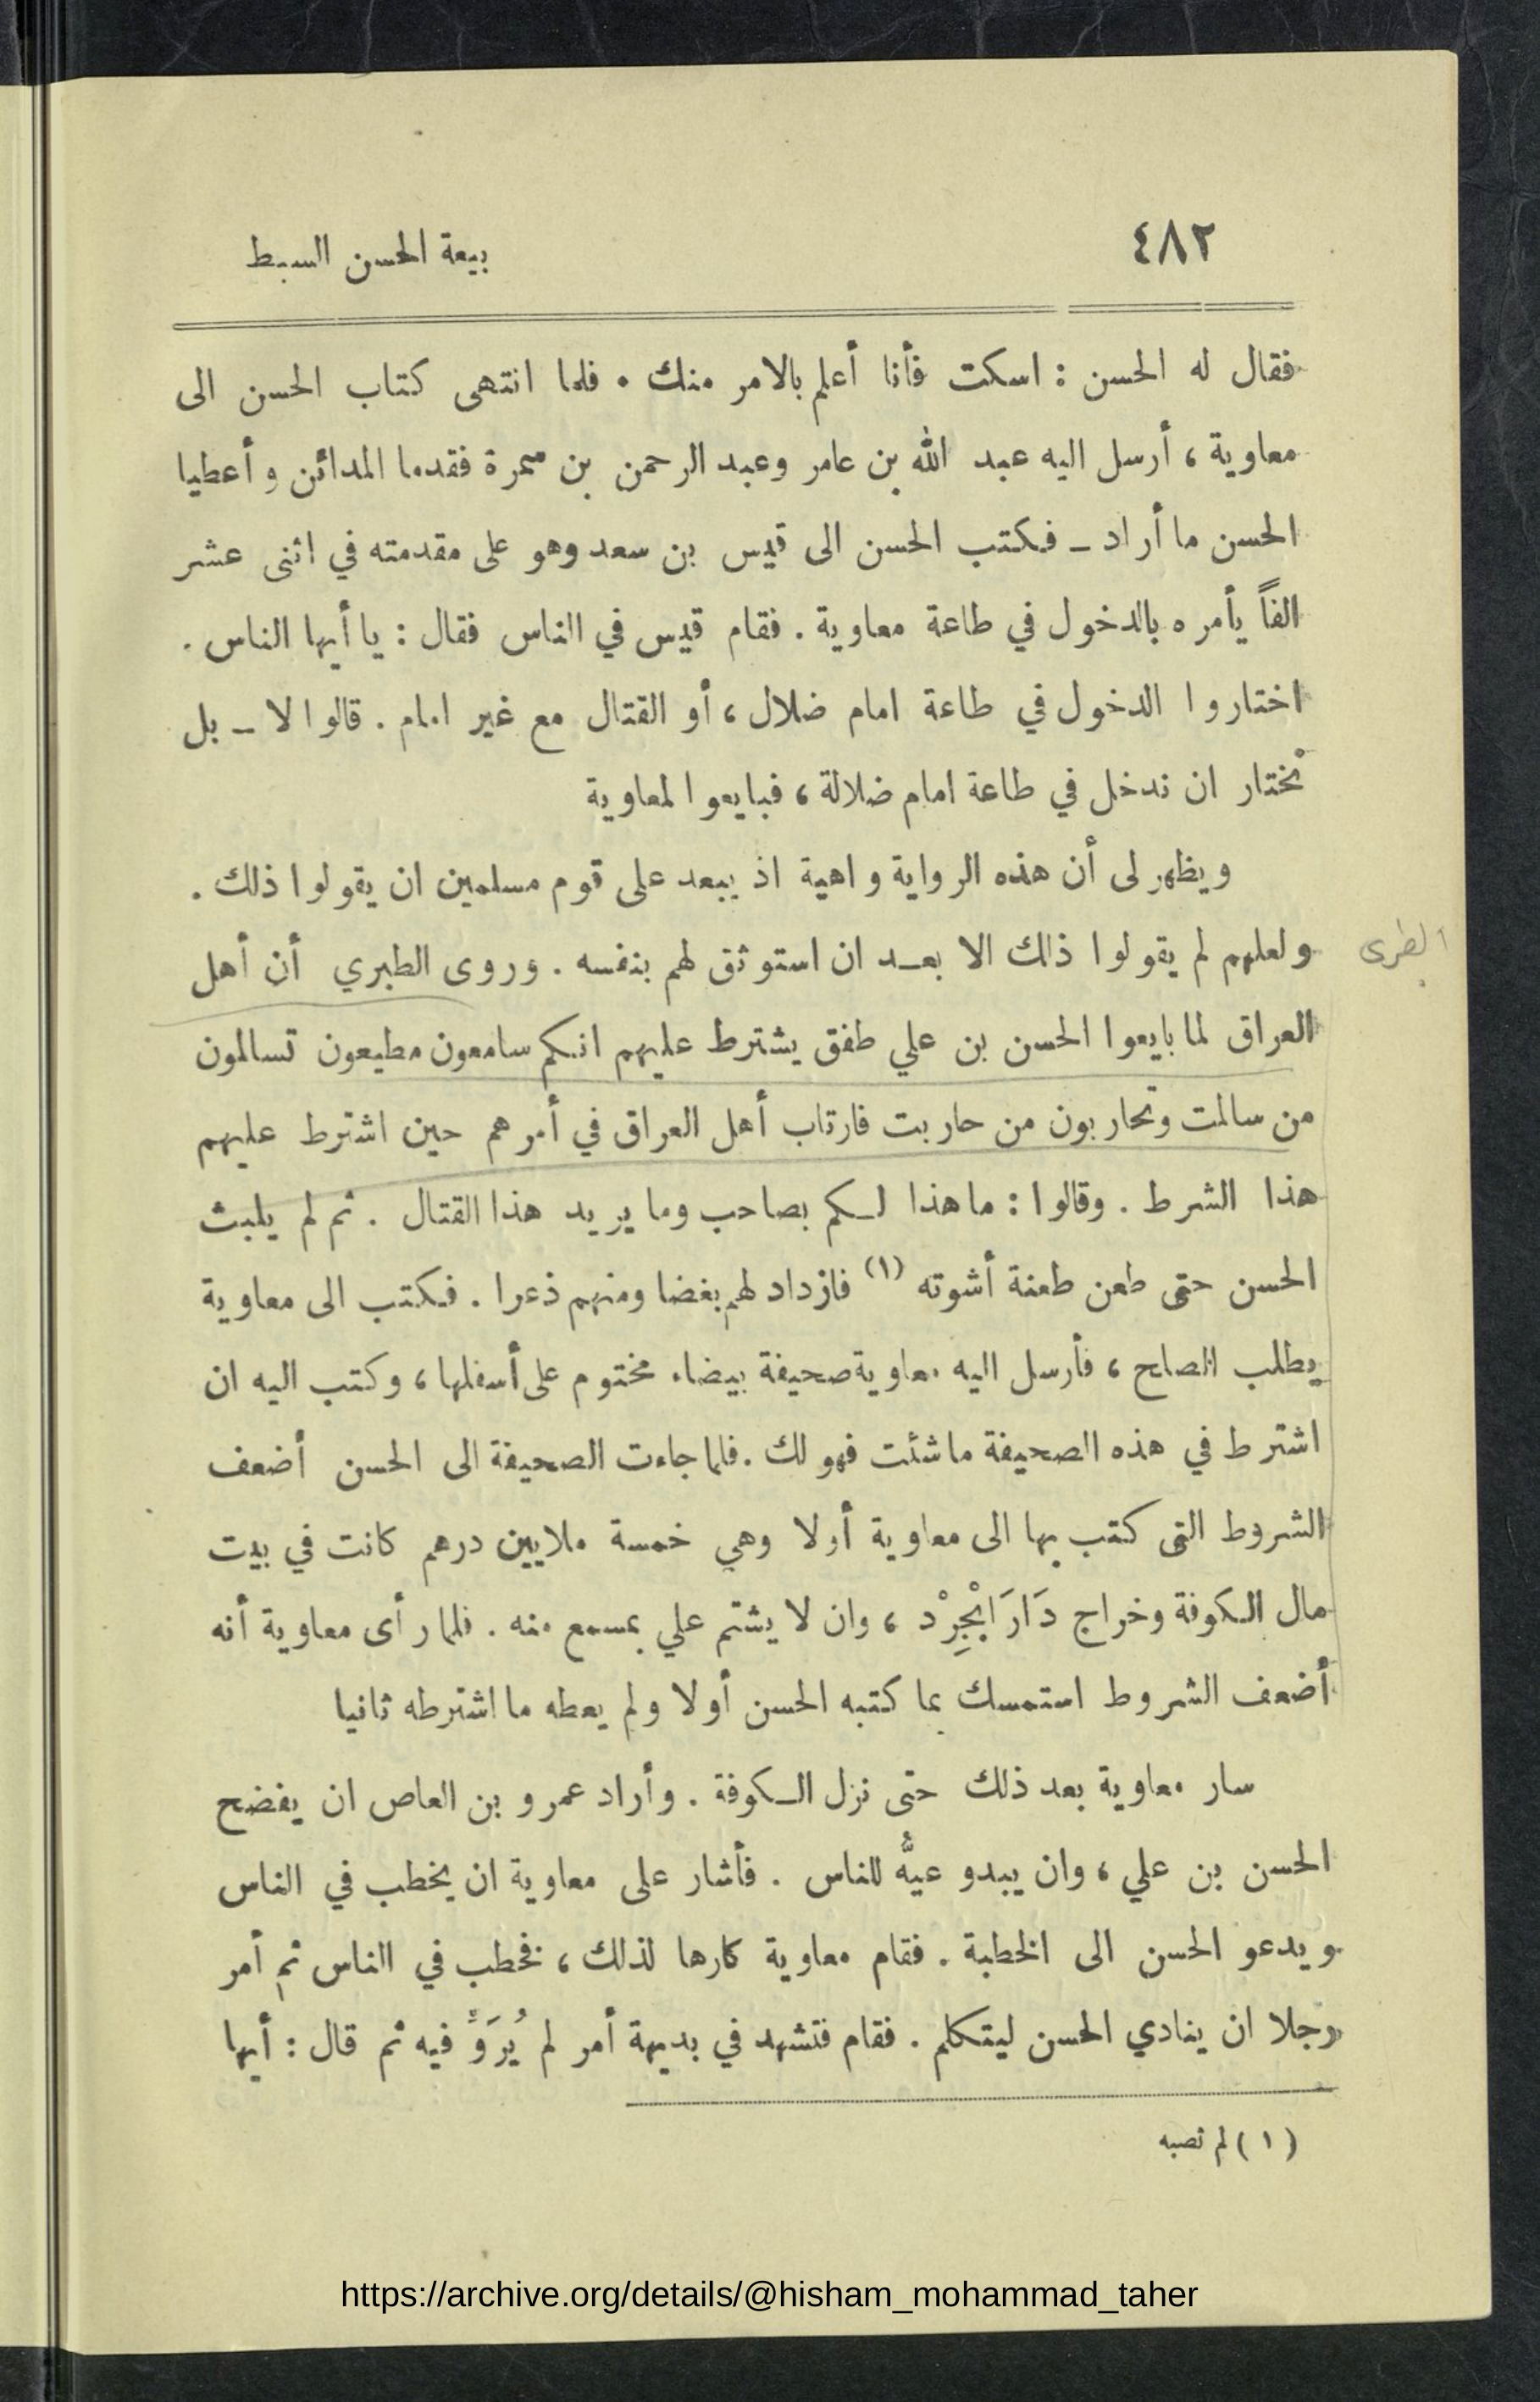 ٤٨٢
بيعة الحسن السبط
فقال له الحسن : اسكت فأنا أعلم بالامر منك . فلما انتهى كتاب الحسن الى
معاوية ، أرسل اليه عبد الله بن عامر وعبد الرحمن بن سمرة فقدما المدائن وأعطيا
الحسن ما أراد ــ فكتب الحسن الى قيس بن سعد وهو على مقدمته في اثنى عشر
الفاً يأمره بالدخول في طاعة معاوية . فقام قيس في الناس فقال : يا أيها الناس .
اختاروا الدخول في طاعة امام ضلال ، أو القتال مع غير امام . قالوا لا ــ بل
نختار ان ندخل في طاعة امام ضلالة ، فبايعوا لمعاوية
ويظهر لى أن هذه الرواية واهية اذ يبعد على قوم مسلمين ان يقولوا ذلك .
ولعلهم لم يقولوا ذلك الا بعـد ان استوثق لهم بنفسه . وروى الطبري أن أهل
الطبرى
العراق لما بايعوا الحسن بن علي طفق يشترط عليهم انكم سامعون مطيعون تسالمون
من سالمت وتحاربون من حاربت فارتاب أهل العراق في أمرهم حين اشترط عليهم
هذا الشرط . وقالوا : ما هذا لـكم بصاحب وما يريد هذا القتال . ثم لم يلبث
الحسن حتى طعن طعنة أشوته (١) فازداد لهم بغضا ومنهم ذعرا . فكتب الى معاوية
يطلب الصلح ، فأرسل اليه معاوية صحيفة بيضاء مختوم على أسفلها ، وكتب اليه ان
اشترط في هذه الصحيفة ما شئت فهو لك . فلما جاءت الصحيفة الى الحسن أضعف
الشروط التى كتب بها الى معاوية أولا وهي خمسة ملايين درهم كانت في بيت
مال الـكوفة وخراج دَارَابْجِرْد ، وان لا يشتم علي بمسمع منه . فلما رأى معاوية أنه
أضعف الشروط استمسك بما كتبه الحسن أولا ولم يعطه ما اشترطه ثانيا
سار معاوية بعد ذلك حتى نزل الـكوفة . وأراد عمرو بن العاص ان يفضح
الحسن بن علي ، وان يبدو عيُّه للناس . فأشار على معاوية ان يخطب في الناس
ويدعو الحسن الى الخطبة . فقام معاوية كارها لذلك ، فخطب في الناس ثم أمر
رجلا ان ينادي الحسن ليتكلم . فقام فتشهد في بديهة أمر لم يُرَوَّ فيه ثم قال : أيها
(١) لم تصبه
https://archive.org/details/@hisham_mohammad_taher